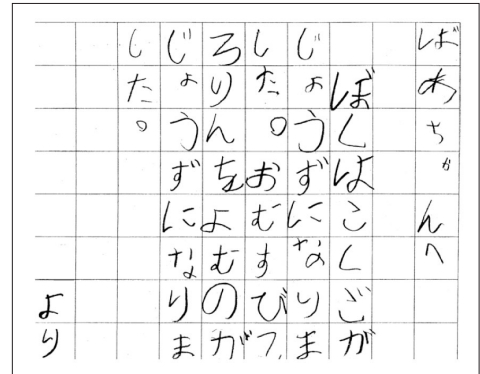 ばあちゃんへ
ぼくはこくごが
じょうずになりま
した。おむすびこ
ろりんをよむのが
じょうずになりま
した。
より